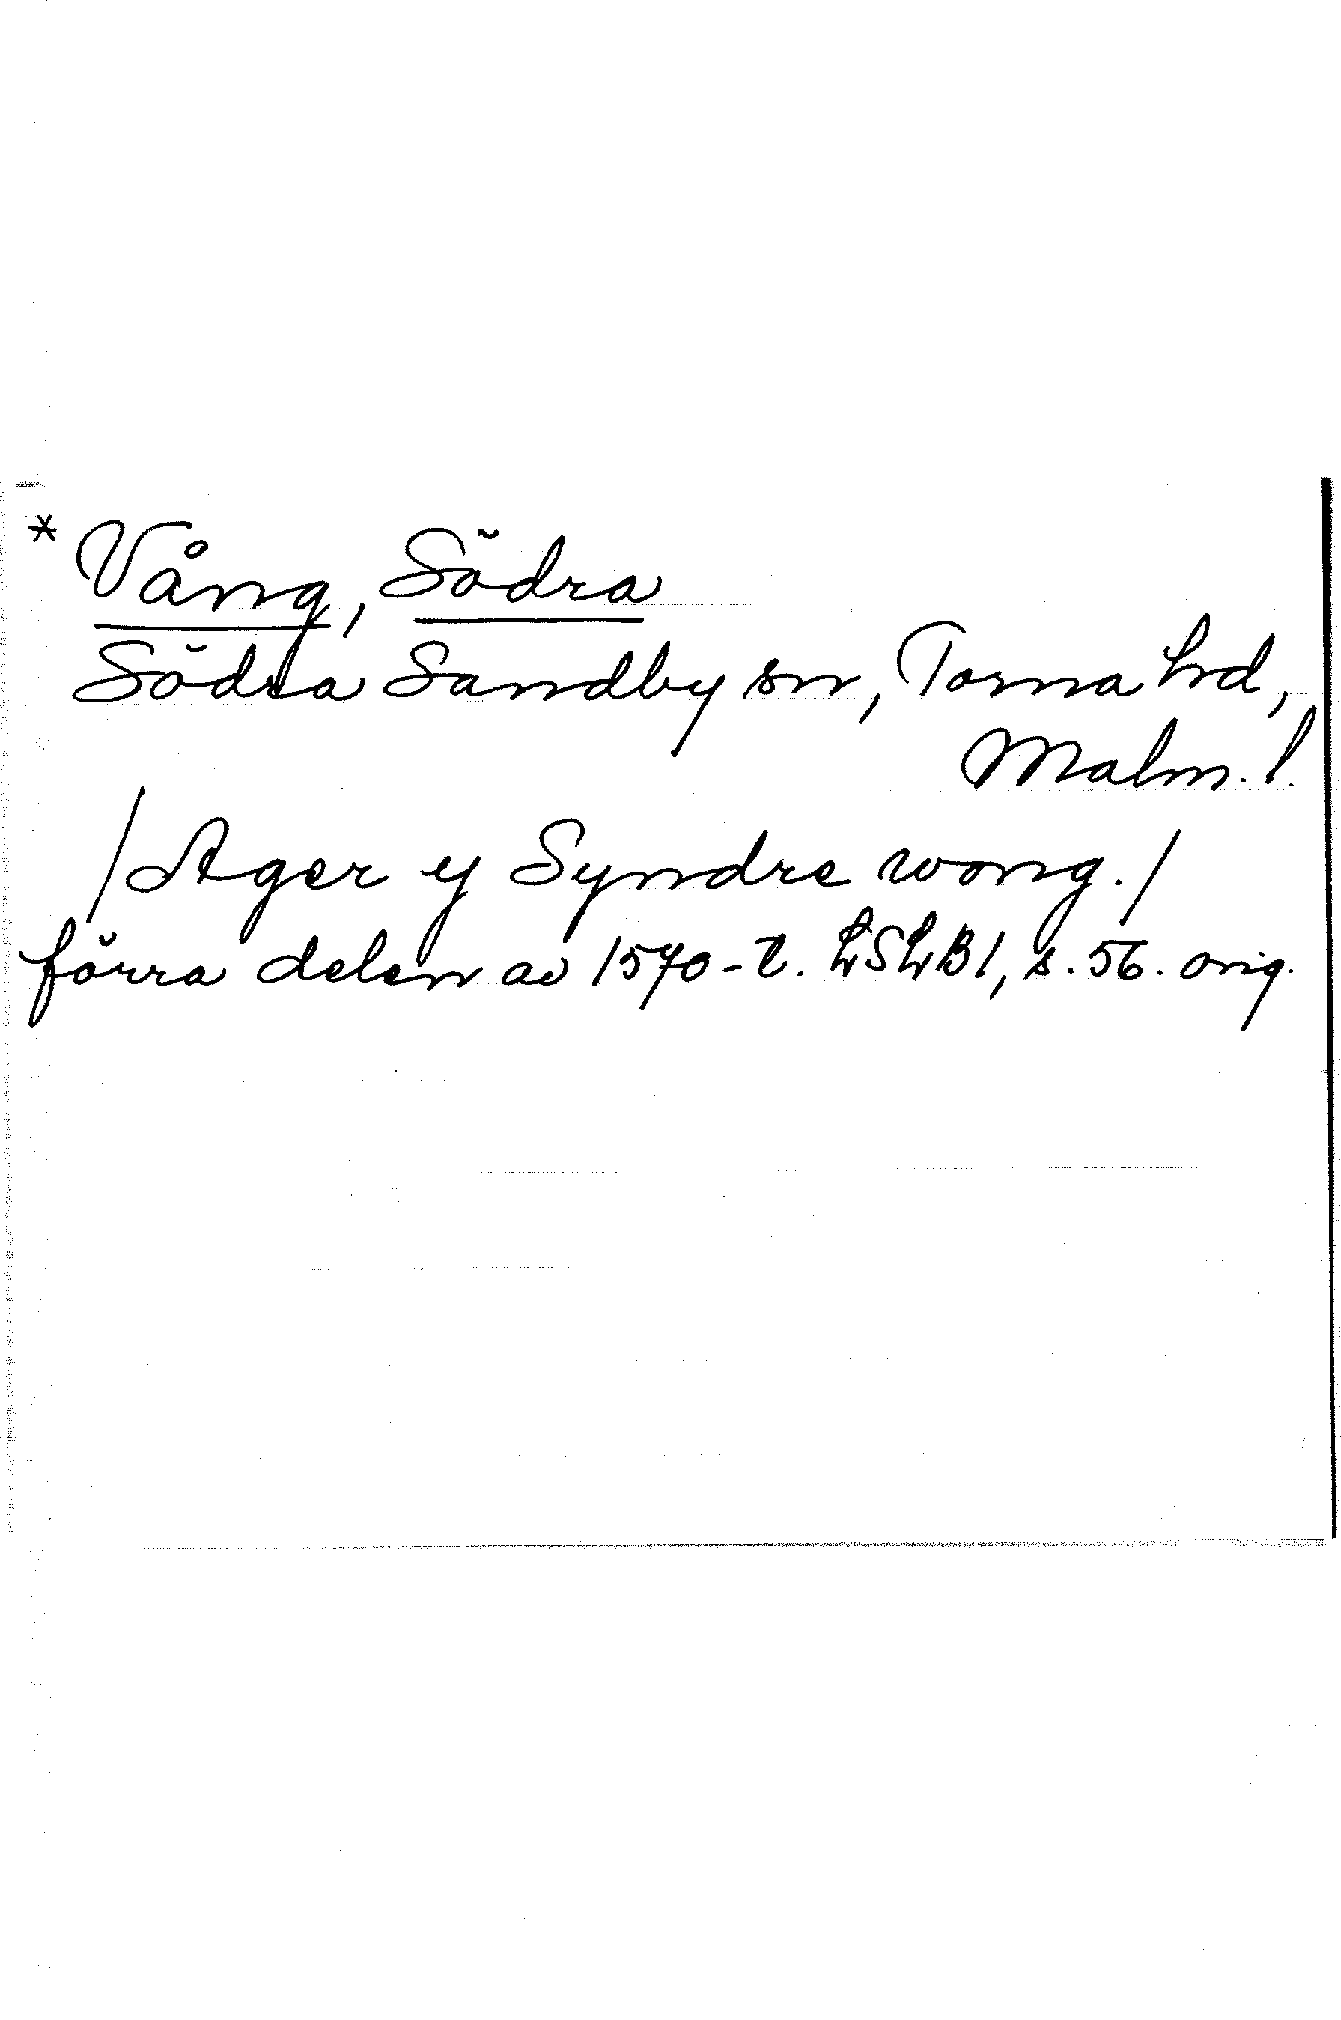 * Vång, Södra
Södra Sandby sn, Torna hrd,
Malm. l.
/Ager y Syndre wong./
förra delen av 1570-t. LSLB1, s. 56. orig.